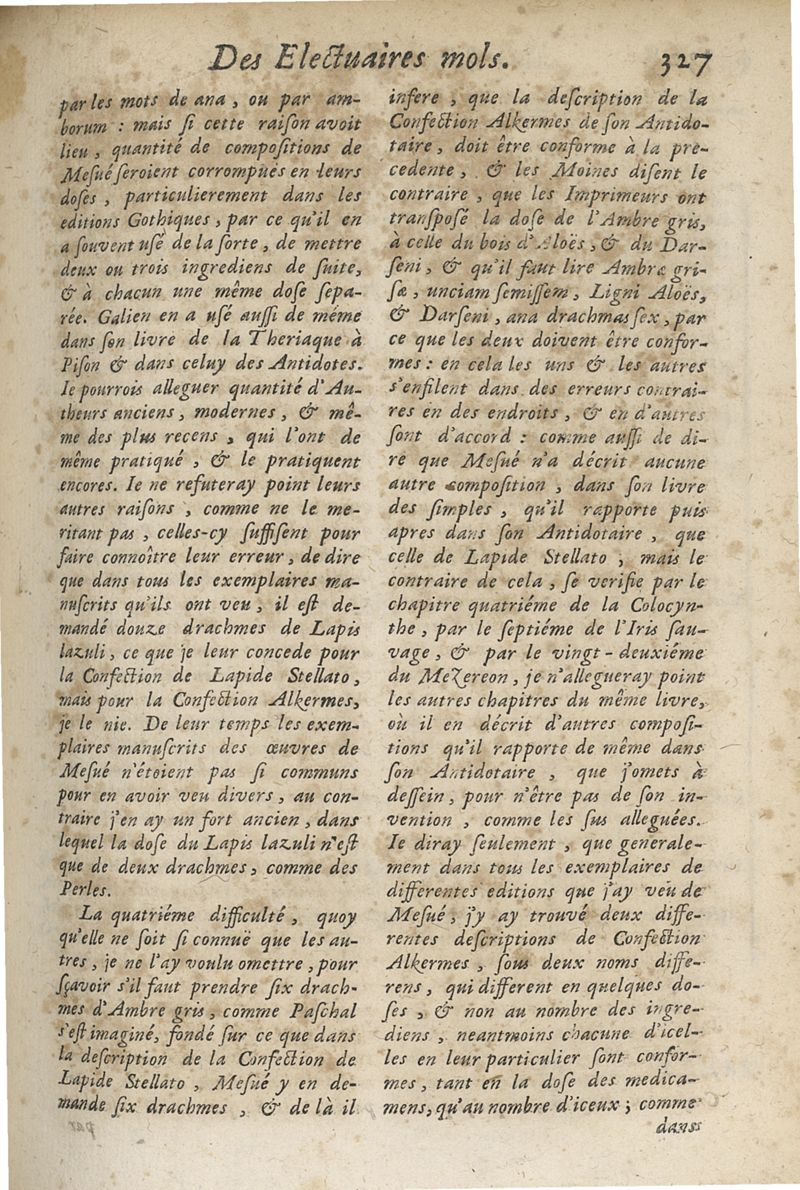 Des Electuaires mols. 327
par les mots de ana, ou par am-
borum : mais ſi cette raiſon avoit
lieu, quantité de compoſitions de
Meſué ſeroient corrompuës en leurs
doſes, particulierement dans les
editions Gothiques, par ce qu'il en
a ſouvent uſé de la ſorte, de mettre
deux ou trois ingrediens de ſuite,
& à chacun une même doſe ſepa-
rée. Galien en a uſé auſſi de méme
dans ſon livre de la Theriaque à
Piſon & dans celuy des Antidotes.
Ie pourrois alleguer quantité d'Au-
theurs anciens, modernes, & mê-
me des plus recens, qui l'ont de
même pratiqué, & le pratiquent
encores. Ie ne refuteray point leurs
autres raiſons, comme ne le me-
ritant pas, celles-cy ſuffiſent pour
faire connoître leur erreur, de dire
que dans tous les exemplaires ma-
nuſcrits qu'ils ont veu, il eſt de-
mandé douze drachmes de Lapis
lazuli, ce que je leur concede pour
la Confection de Lapide Stellato,
mais pour la Confection Alkermes,
je le nie. De leur temps les exem-
plaires manuſcrits des œuvres de
Meſué n'étoient pas ſi communs
pour en avoir veu divers, au con-
traire j'en ay un fort ancien, dans
lequel la doſe du Lapis lazuli n'eſt
que de deux drachmes, comme des
Perles.
La quatriéme difficulté, quoy
qu'elle ne ſoit ſi connuë que les au-
tres, je ne l'ay voulu omettre, pour
ſçavoir s'il faut prendre ſix drach-
mes d'Ambre gris, comme Paſchal
s'eſt imaginé, fondé ſur ce que dans
la deſcription de la Confection de
Lapide Stellato, Meſué y en de-
mande ſix drachmes, & de là il
infere, que la deſcription de la
Confection Alkermes de ſon Antido-
taire, doit être conforme à la pre-
cedente, & les Moines diſent le
contraire, que les Imprimeurs ont
tranſpoſé la doſe de l'Ambre gris,
à celle du bois d'Aloës, & du Dar-
ſeni, & qu'il faut lire Ambræ gri-
ſæ, unciam ſemiſſem, Ligni Aloës,
& Darſeni, ana drachmas ſex, par
ce que les deux doivent être confor-
mes : en cela les uns & les autres
s'enfilent dans des erreurs contrai-
res en des endroits, & en d'autres
ſont d'accord : comme auſſi de di-
re que Meſué n'a décrit aucune
autre compoſition, dans ſon livre
des ſimples, qu'il rapporte puis
apres dans ſon Antidotaire, que
celle de Lapide Stellato, mais le
contraire de cela, ſe verifie par le
chapitre quatriéme de la Colocyn-
the, par le ſeptiéme de l'Iris ſau-
vage, & par le vingt-deuxiéme
du Mezereon, je n'allegueray point
les autres chapitres du même livre,
où il en décrit d'autres compoſi-
tions qu'il rapporte de même dans
ſon Antidotaire, que j'omets à
deſſein, pour n'être pas de ſon in-
vention, comme les ſus alleguées.
Ie diray ſeulement, que generale-
ment dans tous les exemplaires de
differentes editions que j'ay veu de
Meſué, j'y ay trouvé deux diffe-
rentes deſcriptions de Confection
Alkermes, ſous deux noms diffe-
rens, qui different en quelques do-
ſes, & non au nombre des ingre-
diens, neantmoins chacune d'icel-
les en leur particulier ſont confor-
mes, tant en la doſe des medica-
mens, qu'au nombre d'iceux ; comme
dans